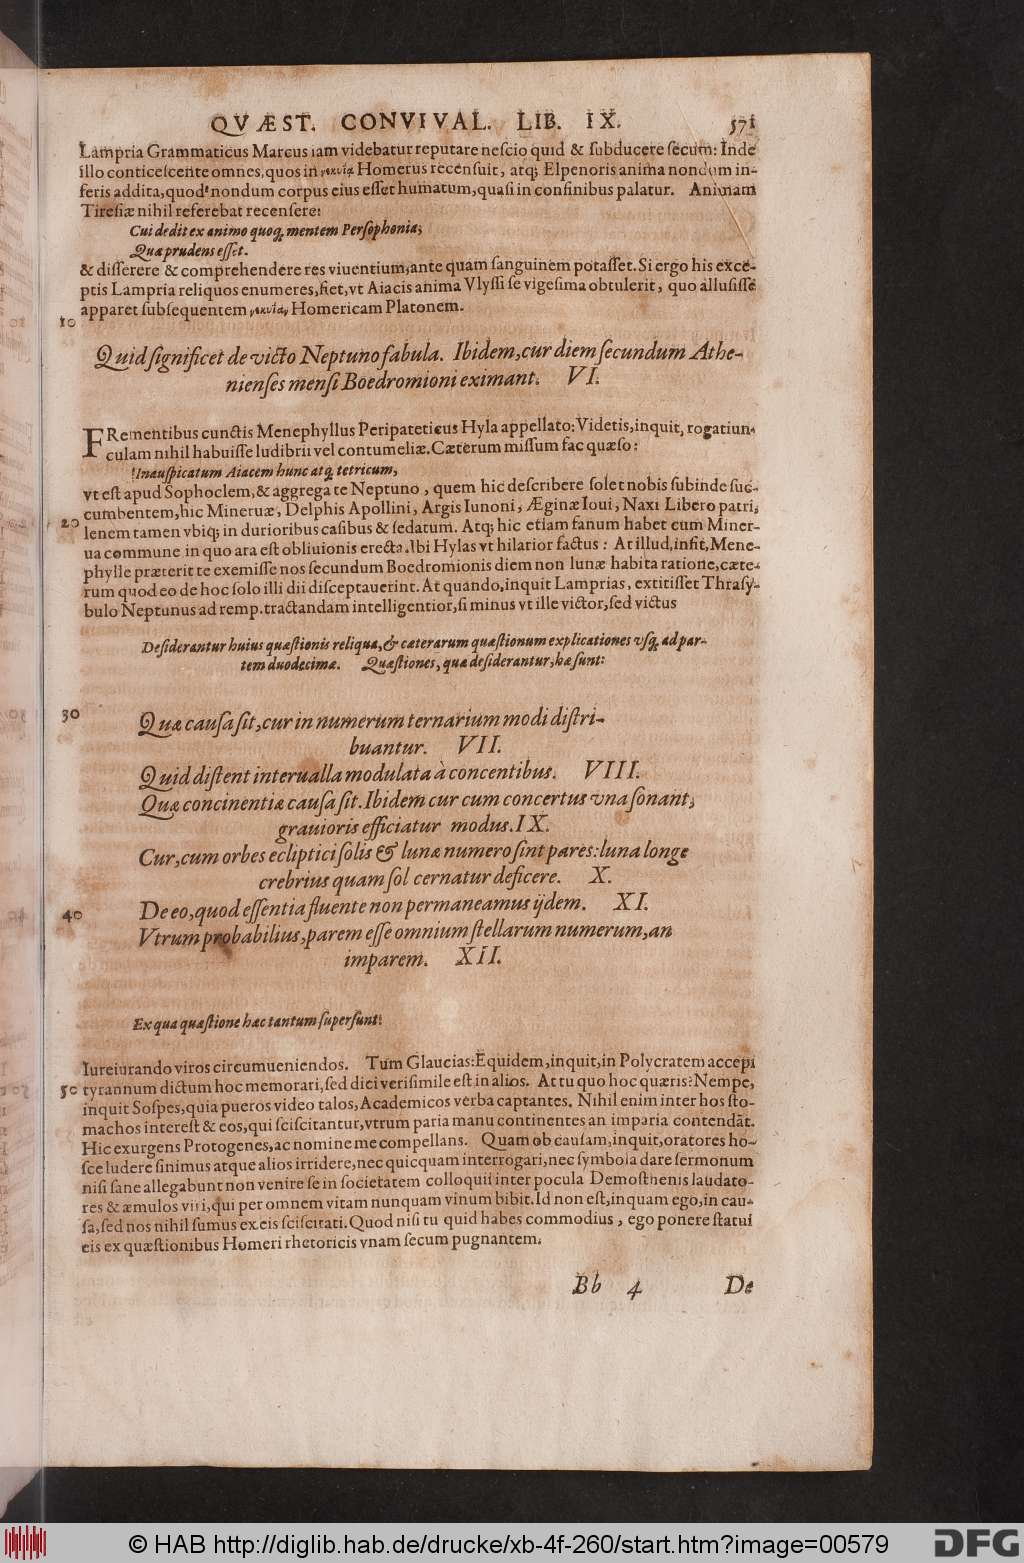 QVÆST. CONVIVAL. LIB. IX. 571
Lampria Grammaticus Marcus iam videbatur reputare nescio quid & subducere secum: Inde
illo conticescente omnes, quos in νεκυίᾳ Homerus recensuit, atq; Elpenoris anima nondum in-
feris addita, quod nondum corpus eius esset humatum, quasi in confinibus palatur. Animam
Tiresiæ nihil referebat recensere:
Cui dedit ex animo quoq; mentem Persophonia,
Quæ prudens esset.
& disserere & comprehendere res viuentium, ante quam sanguinem potasset. Si ergo his exce-
ptis Lampria reliquos enumeres, fiet, vt Aiacis anima Vlyssi se vigesima obtulerit, quo allusisse
apparet subsequentem νεκυίαν Homericam Platonem.
10
Quid significet de victo Neptuno fabula. Ibidem, cur diem secundum Athe-
nienses mensi Boedromioni eximant. VI.
FRementibus cunctis Menephyllus Peripateticus Hyla appellato: Videtis, inquit, rogatiun-
culam nihil habuisse ludibrii vel contumeliæ. Cæterum missum fac quæso:
Inauspicatum Aiacem hunc atq; tetricum,
vt est apud Sophoclem, & aggrega te Neptuno, quem hic describere solet nobis subinde suc-
cumbentem, hic Mineruæ, Delphis Apollini, Argis Iunoni, Æginæ Ioui, Naxi Libero patri,
20 lenem tamen vbiq; in durioribus casibus & sedatum. Atq; hic etiam fanum habet cum Miner-
ua commune in quo ara est obliuionis erecta. Ibi Hylas vt hilarior factus: At illud, insit, Mene-
phylle præterit te exemisse nos secundum Boedromionis diem non lunæ habita ratione, cæte-
rum quod eo de hoc solo illi dii disceptauerint. At quando, inquit Lamprias, extitisset Thrasy-
bulo Neptunus ad remp. tractandam intelligentior, si minus vt ille victor, sed victus
Desiderantur huius quæstionis reliqua, & cæterarum quæstionum explicationes vsq; ad par-
tem duodecimæ. Quæstiones, quæ desiderantur, hæ sunt:
30 Quæ causa sit, cur in numerum ternarium modi distri-
buantur. VII.
Quid distent interualla modulata à concentibus. VIII.
Quæ concinentiæ causa sit. Ibidem cur cum concertus vna sonant,
grauioris efficiatur modus. IX.
Cur, cum orbes ecliptici solis & lunæ numero sint pares: luna longe
crebrius quam sol cernatur deficere. X.
40 De eo, quod essentia fluente non permaneamus ijdem. XI.
Vtrum probabilius, parem esse omnium stellarum numerum, an
imparem. XII.
Ex qua quæstione hæc tantum supersunt:
Iureiurando viros circumueniendos. Tum Glaucias: Equidem, inquit, in Polycratem accepi
50 tyrannum dictum hoc memorari, sed dici verisimile est in alios. At tu quo hoc quæris? Nempe,
inquit Sospes, quia pueros video talos, Academicos verba captantes. Nihil enim inter hos sto-
machos interest & eos, qui sciscitantur, vtrum paria manu continentes an imparia contendāt.
Hic exurgens Protogenes, ac nomine me compellans. Quam ob causam, inquit, oratores ho-
sce ludere sinimus atque alios irridere, nec quicquam interrogari, nec symbola dare sermonum
nisi sane allegabunt non venire se in societatem colloquii inter pocula Demosthenis laudato-
res & æmulos viri, qui per omnem vitam nunquam vinum bibit. Id non est, inquam ego, in cau-
sa, sed nos nihil sumus ex eis sciscitati. Quod nisi tu quid habes commodius, ego ponere statui
eis ex quæstionibus Homeri rhetoricis vnam secum pugnantem.
Bb 4 De
© HAB http://diglib.hab.de/drucke/xb-4f-260/start.htm?image=00579
DFG